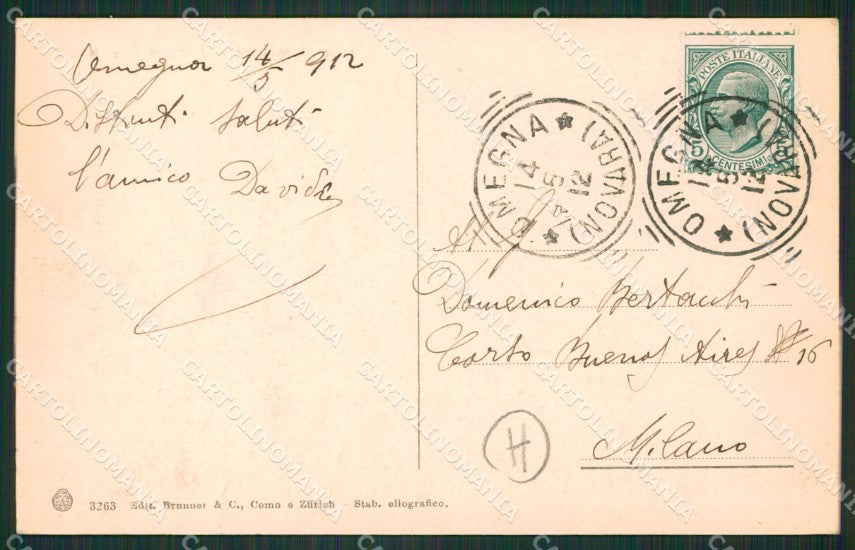 Omegna 14/5 912
Distinti saluti
l'amico Davide
POSTE ITALIANE
5 CENTESIMI 5
OMEGNA * (NOVARA) *
14 5 12
OMEGNA * (NOVARA) *
14 5 12
Al Sig
Domenico Bertacchi
Corso Buenos Aires N 16
Milano
H
3263 Edit. Brunner & C., Como e Zürich - Stab. eliografico.
CARTOLINOMANIA